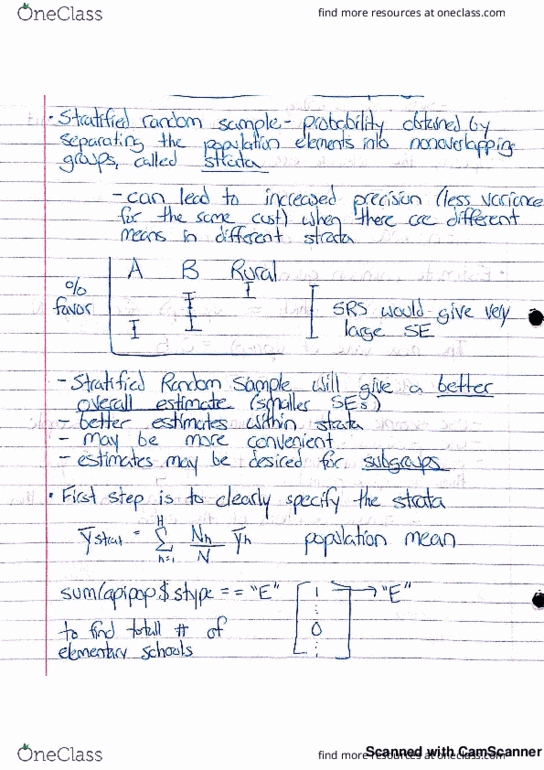 OneClass
find more resources at oneclass.com
• Stratified random sample - probability obtained by
separating the population elements into nonoverlapping
groups, called strata
- can lead to increased precision (less variance
for the same cost) when there are different
means in different strata
A B Rural
%
favor
SRS would give very
large SE
- Stratified Random Sample will give a better
overall estimate (smaller SEs)
- better estimates within strata
- may be more convenient
- estimates may be desired for subgroups
• First step is to clearly specify the strata
ȳstrat = H Σ h=1 Nh/N ȳh population mean
sum(apipop$stype == "E") [ 1 → "E"
⋮
to find totall # of 0
elementary schools ⋮ ]
OneClass
find more resources at oneclass.com
Scanned with CamScanner